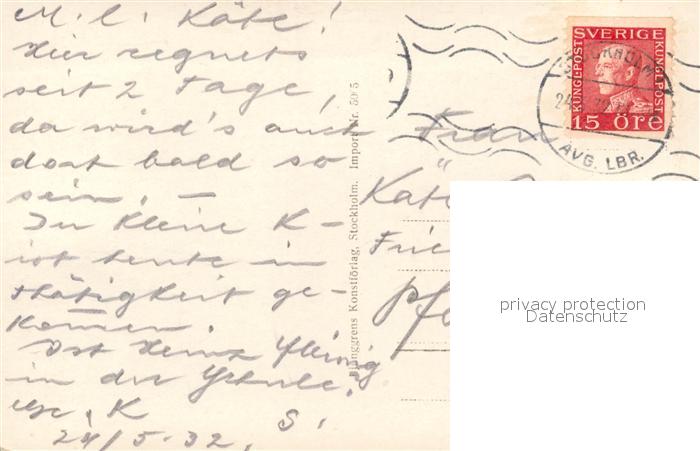 M. l. Käte!
Hier regnets
seit 2 Tage,
da wird's auch
dort bald so
sein. —
Die kleine K–
ist heute in
Thätigkeit ge-
kommen.
Ist Heinz fleissig
in der Schule?
K
24/5.32. S.
Frau
Käte
Pfo
Ljunggrens Konstförlag, Stockholm. Import Nr. 5075
SVERIGE
KUNGL·POST
KUNGL·POST
15 ÖRE
STOCKHOLM
AVG. LBR.
privacy protection
Datenschutz